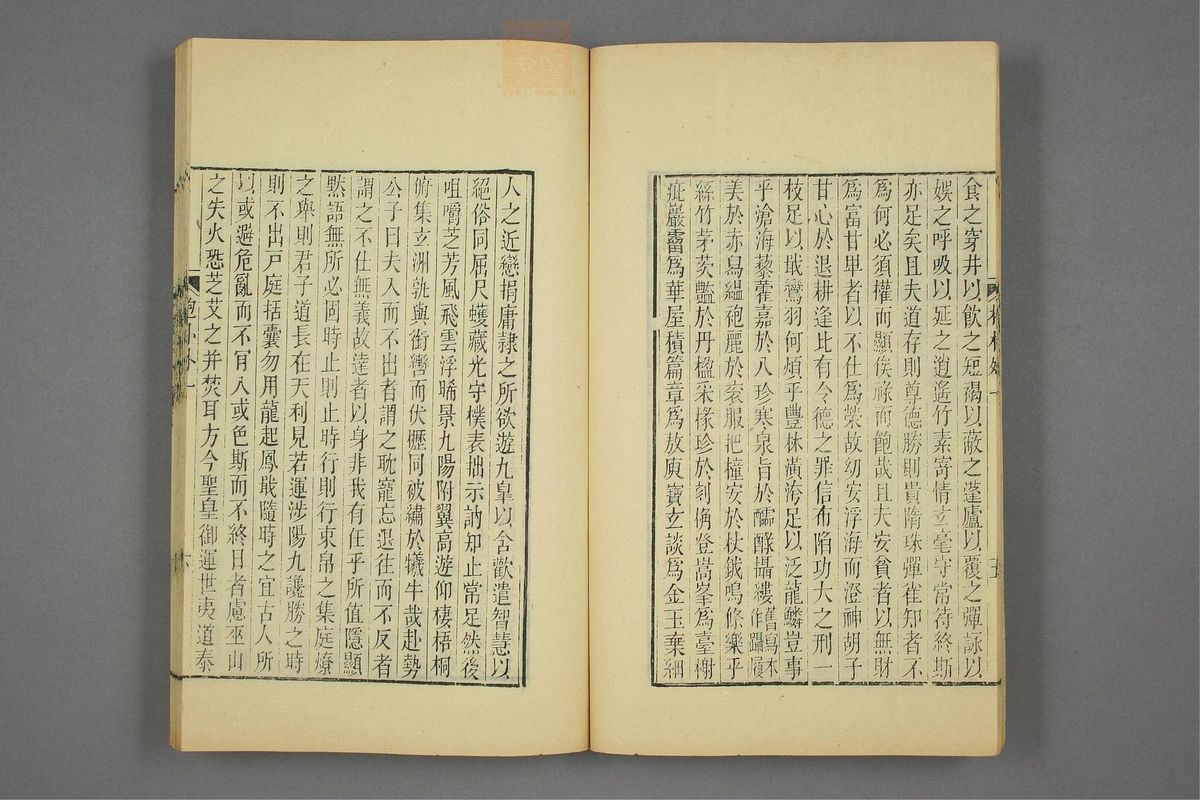 食之穿井以飲之短褐以蔽之蓬廬以覆之彈詠以
娛之呼吸以延之逍遙竹素寄情玄毫守常待終斯
亦足矣且夫道存則尊德勝則貴隋珠彈雀知者不
爲何必須權而顯俟祿而飽哉且夫安貧者以無財
爲富甘卑者以不仕爲榮故幼安浮海而澄神胡子
甘心於退耕逢比有令德之罪信布陷功大之刑一
枝足以戢鸞羽何煩乎豐林潢洿足以泛龍鱗豈事
乎滄海藜藿嘉於八珍寒泉旨於醽醁攝縷舊寫本作躡履
美於赤舄縕袍麗於袞服把橦安於杖鉞鳴條樂乎
絲竹茅茨豔於丹楹采椽珍於刻桷登嵩峯爲臺榭
疵巖霤爲華屋積篇章爲敖庾寶玄談爲金玉棄細
人之近戀捐庸隸之所欲遊九皐以含歡遣智慧以
絕俗同屈尺蠖藏光守樸表拙示訥知止常足然後
咀嚼芝芳風飛雲浮晞景九陽附翼高遊仰棲梧桐
俯集玄洲孰與銜轡而伏櫪同破繡於犧牛哉赴勢
公子曰夫入而不出者謂之耽寵忘退往而不反者
謂之不仕無義故達者以身非我有任乎所值隱顯
默語無所必固時止則止時行則行束帛之集庭燎
之舉則君子道長在天利見若運涉陽九讒勝之時
則不出戶庭括囊勿用龍起鳳戢隨時之宜古人所
以或避危亂而不肎入或色斯而不終日者慮巫山
之失火恐芝艾之并焚耳方今聖皇御運世夷道泰